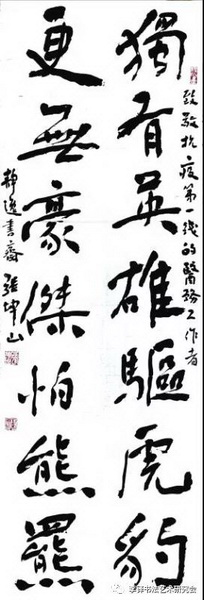 致敬抗疫第一线的醫務工作者
獨有英雄驅虎豹
更無豪傑怕熊羆
静逸書齋 張坤山
李铎书法艺术研究会